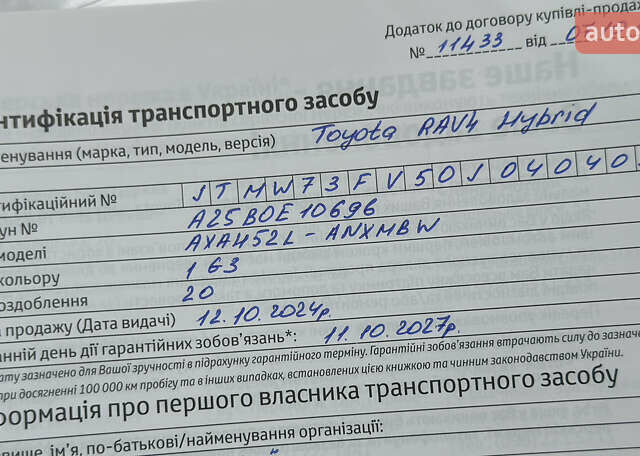 Додаток до договору купівлі-продаж
№ 11433 від 05.
auto
нтифікація транспортного засобу
енування (марка, тип, модель, версія) Toyota RAV4 Hybrid
тифікаційний № JTMWZ3FV50J04040
ун № A25BOE10696
моделі AXA452L-ANXMBW
кольору 1G3
оздоблення 20
продажу (Дата видачі) 12.10.2024р.
нній день дії гарантійних зобов'язань*: 11.10.2027р.
ату зазначено для Вашої зручності в підрахунку гарантійного терміну. Гарантійні зобов'язання втрачають силу до зазначеної
при досягненні 100 000 км пробігу та в інших випадках, встановлених цією книжкою та чинним законодавством України.
формація про першого власника транспортного засобу
вище, ім'я, по-батькові/найменування організації: